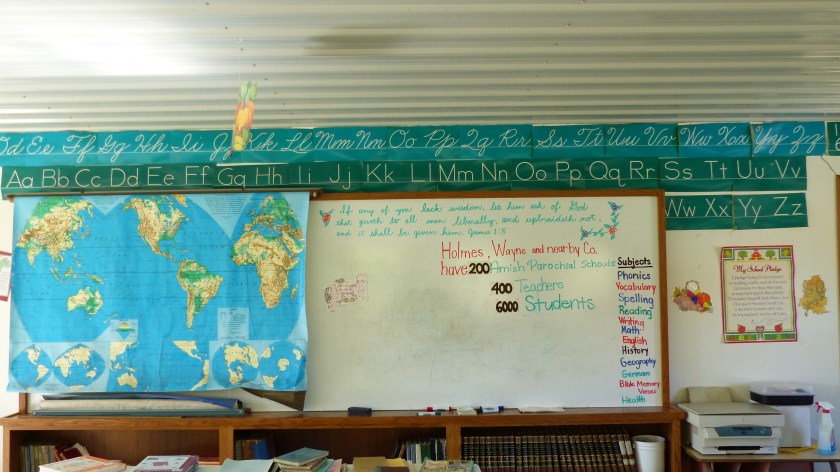 Dd Ee Ff Gg Hh Ii J Kk Ll Mm Nn Oo Pp Qq Rr Ss Tt Uu Vv Ww Xx Yy Zz
Aa Bb Cc Dd Ee Ff Gg Hh Ii Jj Kk Ll Mm Nn Oo Pp Qq Rr Ss Tt Uu Vv
Ww Xx Yy Zz
If any of you lack wisdom, let him ask of God
that giveth to all men liberally, and upbraideth not;
and it shall be given him. James 1:5
Holmes, Wayne and nearby Co.
have 200 Amish Parochial Schools
400 Teachers
6000 Students
Subjects
Phonics
Vocabulary
Spelling
Reading
Writing
Math
English
History
Geography
German
Bible Memory
Verses
Health
My School Pledge